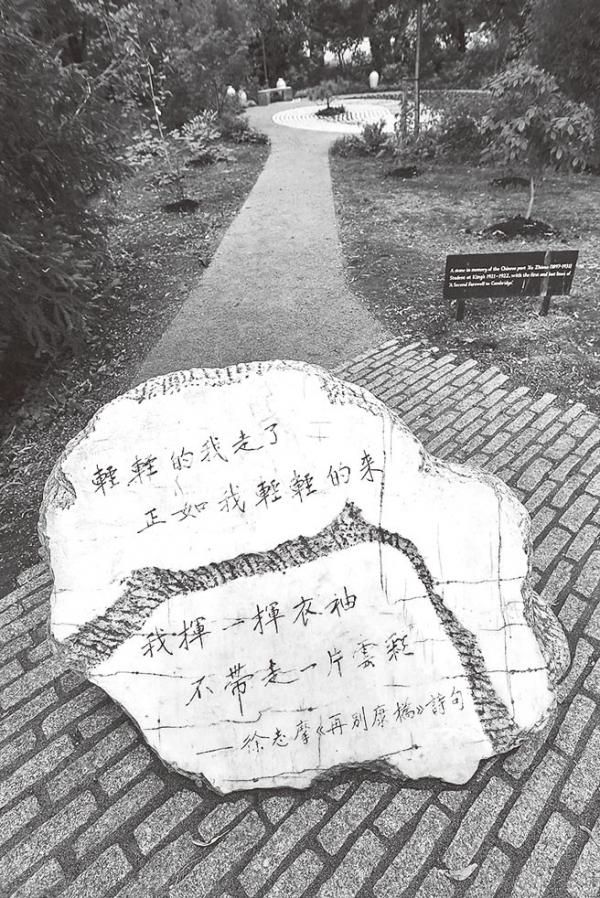 A stone in memory of the Chinese poet Xu Zhimo (1897-1931)
Student at King's 1921-1922, with the first and last lines of
'A Second Farewell to Cambridge'.
輕輕的我走了
正如我輕輕的来
我揮一揮衣袖
不帶走一片雲彩
——徐志摩《再别康橋》詩句